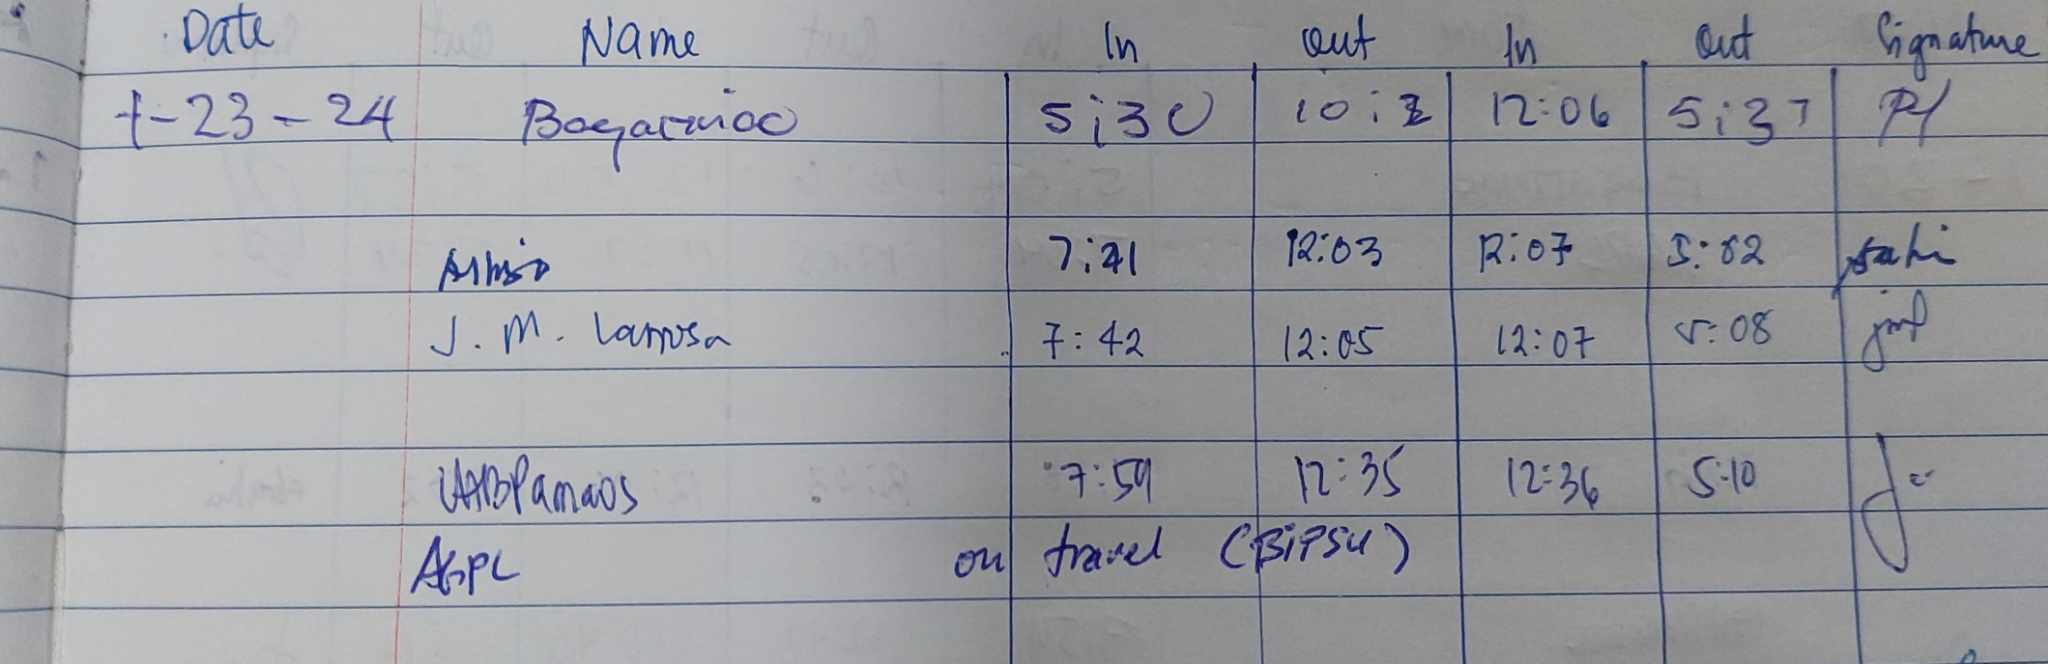 Date Name In Out In Out Signature
7-23-24 5:30 12:06 5:37
7:41 12:03 12:07 5:02
J. M. Larrosa 7:42 12:05 12:07 5:08 jmf
7:59 12:35 12:36 5:10
AGPL on travel (BiPSU)